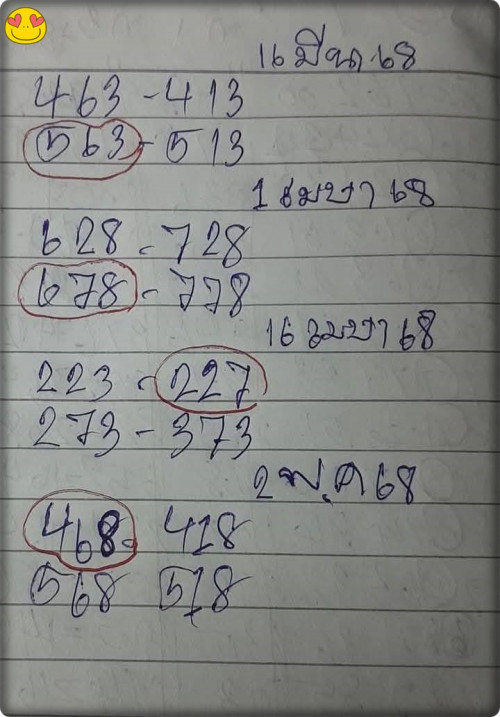 16 มีนา 68
463 - 413
563 - 513
1 เมษา 68
628 - 728
678 - 778
16 เมษา 68
223 - 227
273 - 373
2 พ.ค 68
468 - 418
568 518